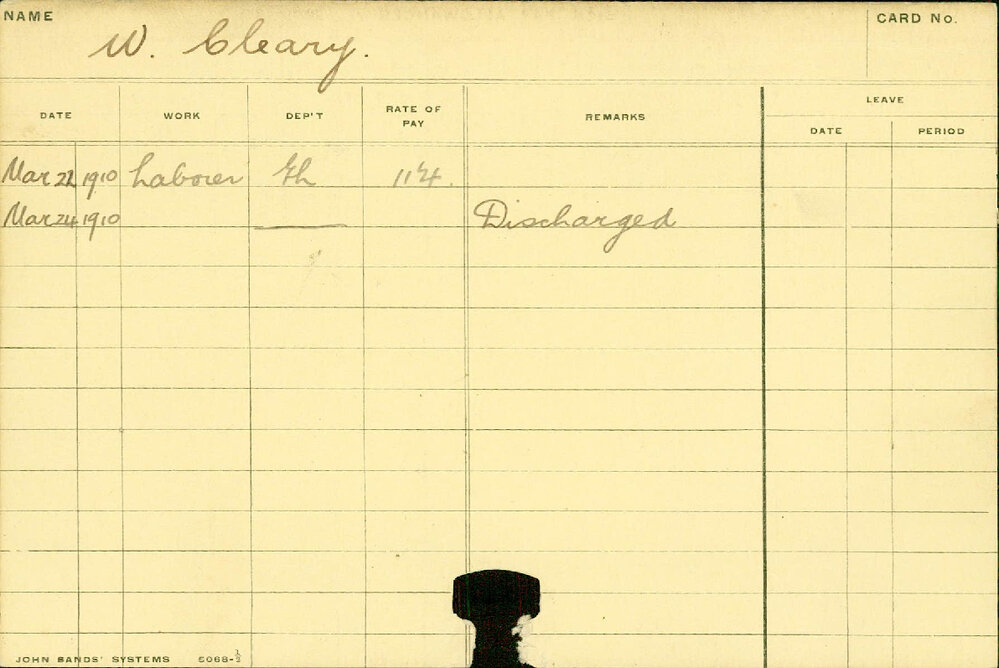 NAME W. Cleary. CARD No.
DATE WORK DEP'T RATE OF PAY REMARKS LEAVE
DATE PERIOD
Mar 22 1910 Laborer
Mar 24 1910 Discharged
JOHN SANDS' SYSTEMS 5068-½